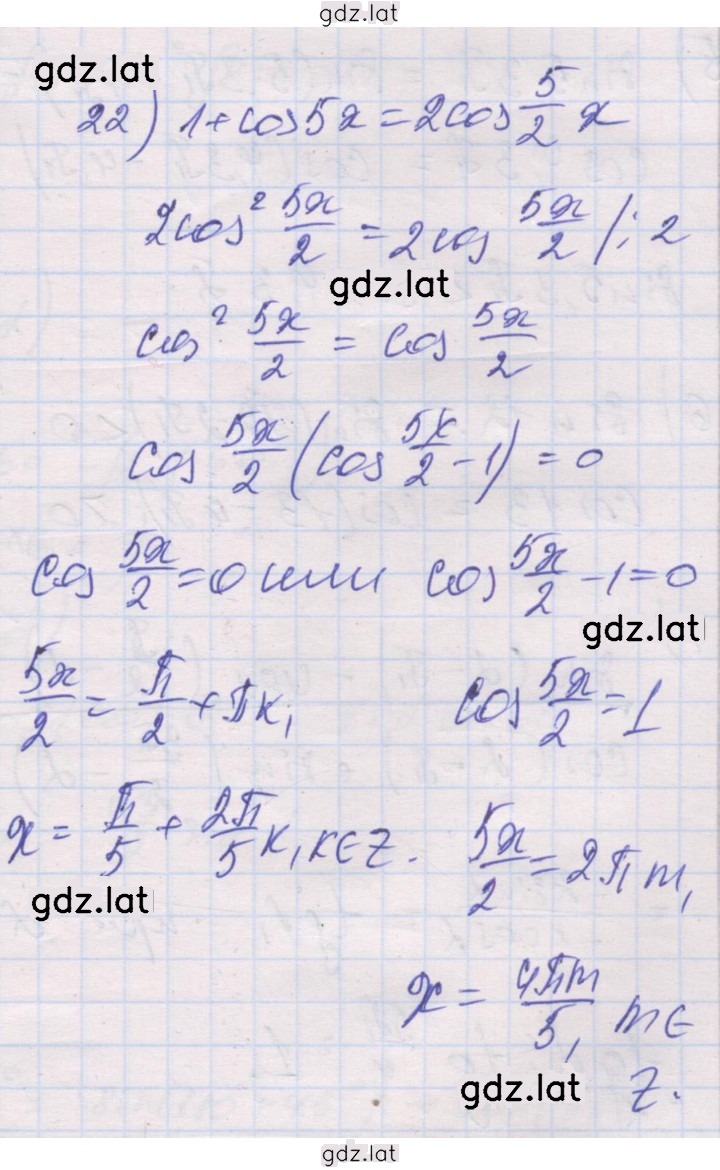 gdz.lat
gdz.lat
22) 1+cos5x=2cos 5/2 x
2cos² 5x/2 = 2cos 5x/2 /:2
gdz.lat
cos² 5x/2 = cos 5x/2
cos 5x/2 (cos 5x/2 -1) =0
cos 5x/2 =0 или cos 5x/2 -1=0
gdz.lat
5x/2 = π/2 + πк, cos 5x/2 =1
x= π/5 + 2π/5 к, к∈Z. 5x/2 =2πm,
gdz.lat
x= 4πm/5, m∈
gdz.lat Z.
gdz.lat